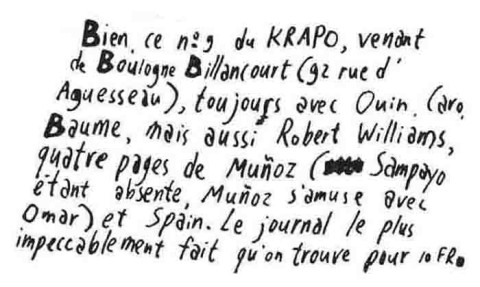 Bien, ce nº9 du KRAPO, venant
de Boulogne Billancourt (92 rue d'
Aguesseau), toujours avec Ouin, Caro,
Baume, mais aussi Robert Williams,
quatre pages de Muñoz (Sampayo
étant absente, Muñoz s'amuse avec
Omar) et Spain. Le journal le plus
impeccablement fait qu'on trouve pour 10 FR.